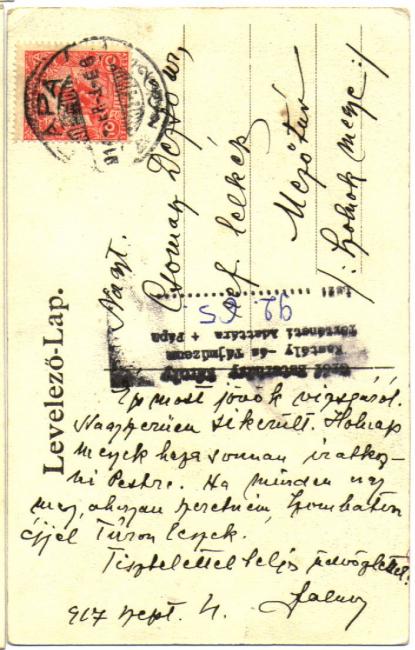 PÁPA
Levelező-Lap.
Nagyt.
Csomay Dezső úr,
ref. lelkész
Mezőtúr
/: Szolnok megye :/
Gróf Esterházy Károly
Kastély- és Tájmúzeum
Történeti Adattára • Pápa
92. CS
Ltsz:
Ép most jövök vizsgáról.
Nagyszerűen sikerült. Holnap
megyek haza s onnan iratkoz-
ni Pestre. Ha minden úgy
meg, ahogyan szeretném szombaton
éjjel Túron leszek.
Tisztelettel teljes üdvözlettel:
917 szept. 4.